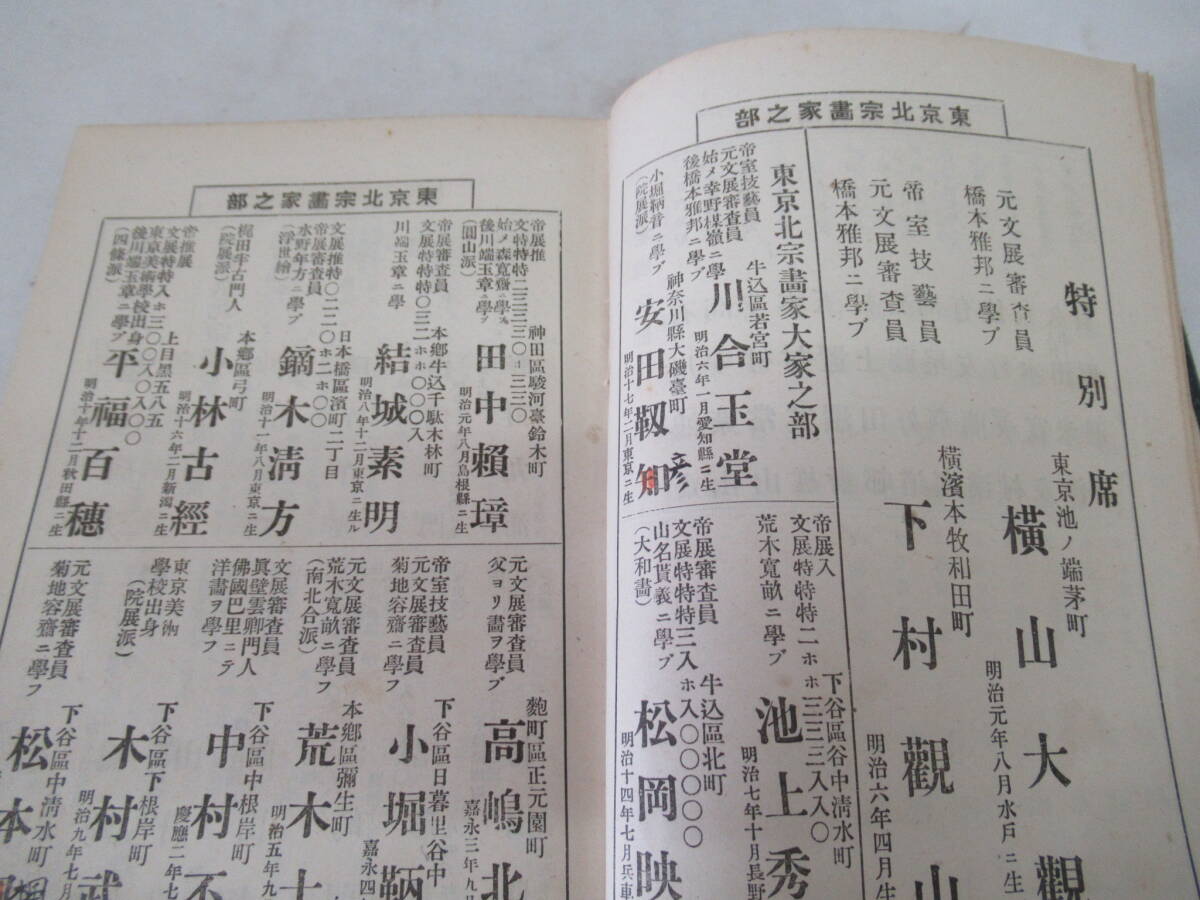 東京北宗畫家之部
特別席
元文展審査員
橋本雅邦ニ學ブ
東京池ノ端茅町
橫山大觀
明治元年八月水戸ニ生
帝室技藝員
元文展審査員
橋本雅邦ニ學ブ
橫濱本牧和田町
下村觀山
明治六年四月生
東京北宗畫家大家之部
帝室技藝員
元文展審査員
始メ幸野楳嶺ニ學
後橋本雅邦ニ學ブ
牛込區若宮町
川合玉堂
明治六年一月愛知縣ニ生
小堀鞆音ニ學ブ
(院展派)
神奈川縣大磯臺町
安田靫知
彦
明治十七年二月東京ニ生
帝展入
文展特特二ホホ三三三入入〇
荒木寬畝ニ學ブ
下谷區谷中清水町
池上秀
明治七年十月長野
帝展審査員
文展特特特三入ホ入〇〇〇〇〇
山名貫義ニ學ブ
(大和畫)
牛込區北町
松岡映
明治十四年七月兵庫
東京北宗畫家之部
帝展推
始メ森寬齋ニ學ヒ
後川端玉章ニ學ブ
(圓山派)
神田區駿河臺鈴木町
田中賴璋
明治元年八月島根縣ニ生
帝展審査員
文展特特〇三二ホホ〇〇〇入
川端玉章ニ學
本鄉牛込千駄木林町
結城素明
明治八年十二月東京ニ生ル
文展推特〇二二〇ホ二ホ〇〇
帝展審査員
水野年方ニ學ブ
(浮世繪)
日本橋區濱町二丁目
鏑木淸方
明治十一年八月東京ニ生
梶田半古門人
(院展派)
本鄉區弓町
小林古經
明治十六年二月新潟ニ生
帝推展
文展特特入ホ三〇〇入〇入〇〇
東京美術學校出身
後川端玉章ニ學ブ
(四條派)
上目黑五八五
平福百穗
明治十年十二月秋田縣ニ生
元文展審査員
父ヨリ畫ヲ學ブ
麴町區正元園町
高嶋北
嘉永三年九
帝室技藝員
元文展審査員
菊地容齋ニ學フ
下谷區日暮里谷中
小堀鞆
嘉永四
元文展審査員
荒木寬畝ニ學フ
(南北合派)
本鄉區彌生町
荒木十
明治五年九
文展審査員
眞壁雲卿門人
佛國巴里ニテ
洋畫ヲ學フ
下谷區中根岸町
中村不
慶應二年七
東京美術
學校出身
(院展派)
下谷區下根岸町
木村武
明治九年七月
元文展審査員
菊地容齋ニ學フ
下谷區中淸水町
松本